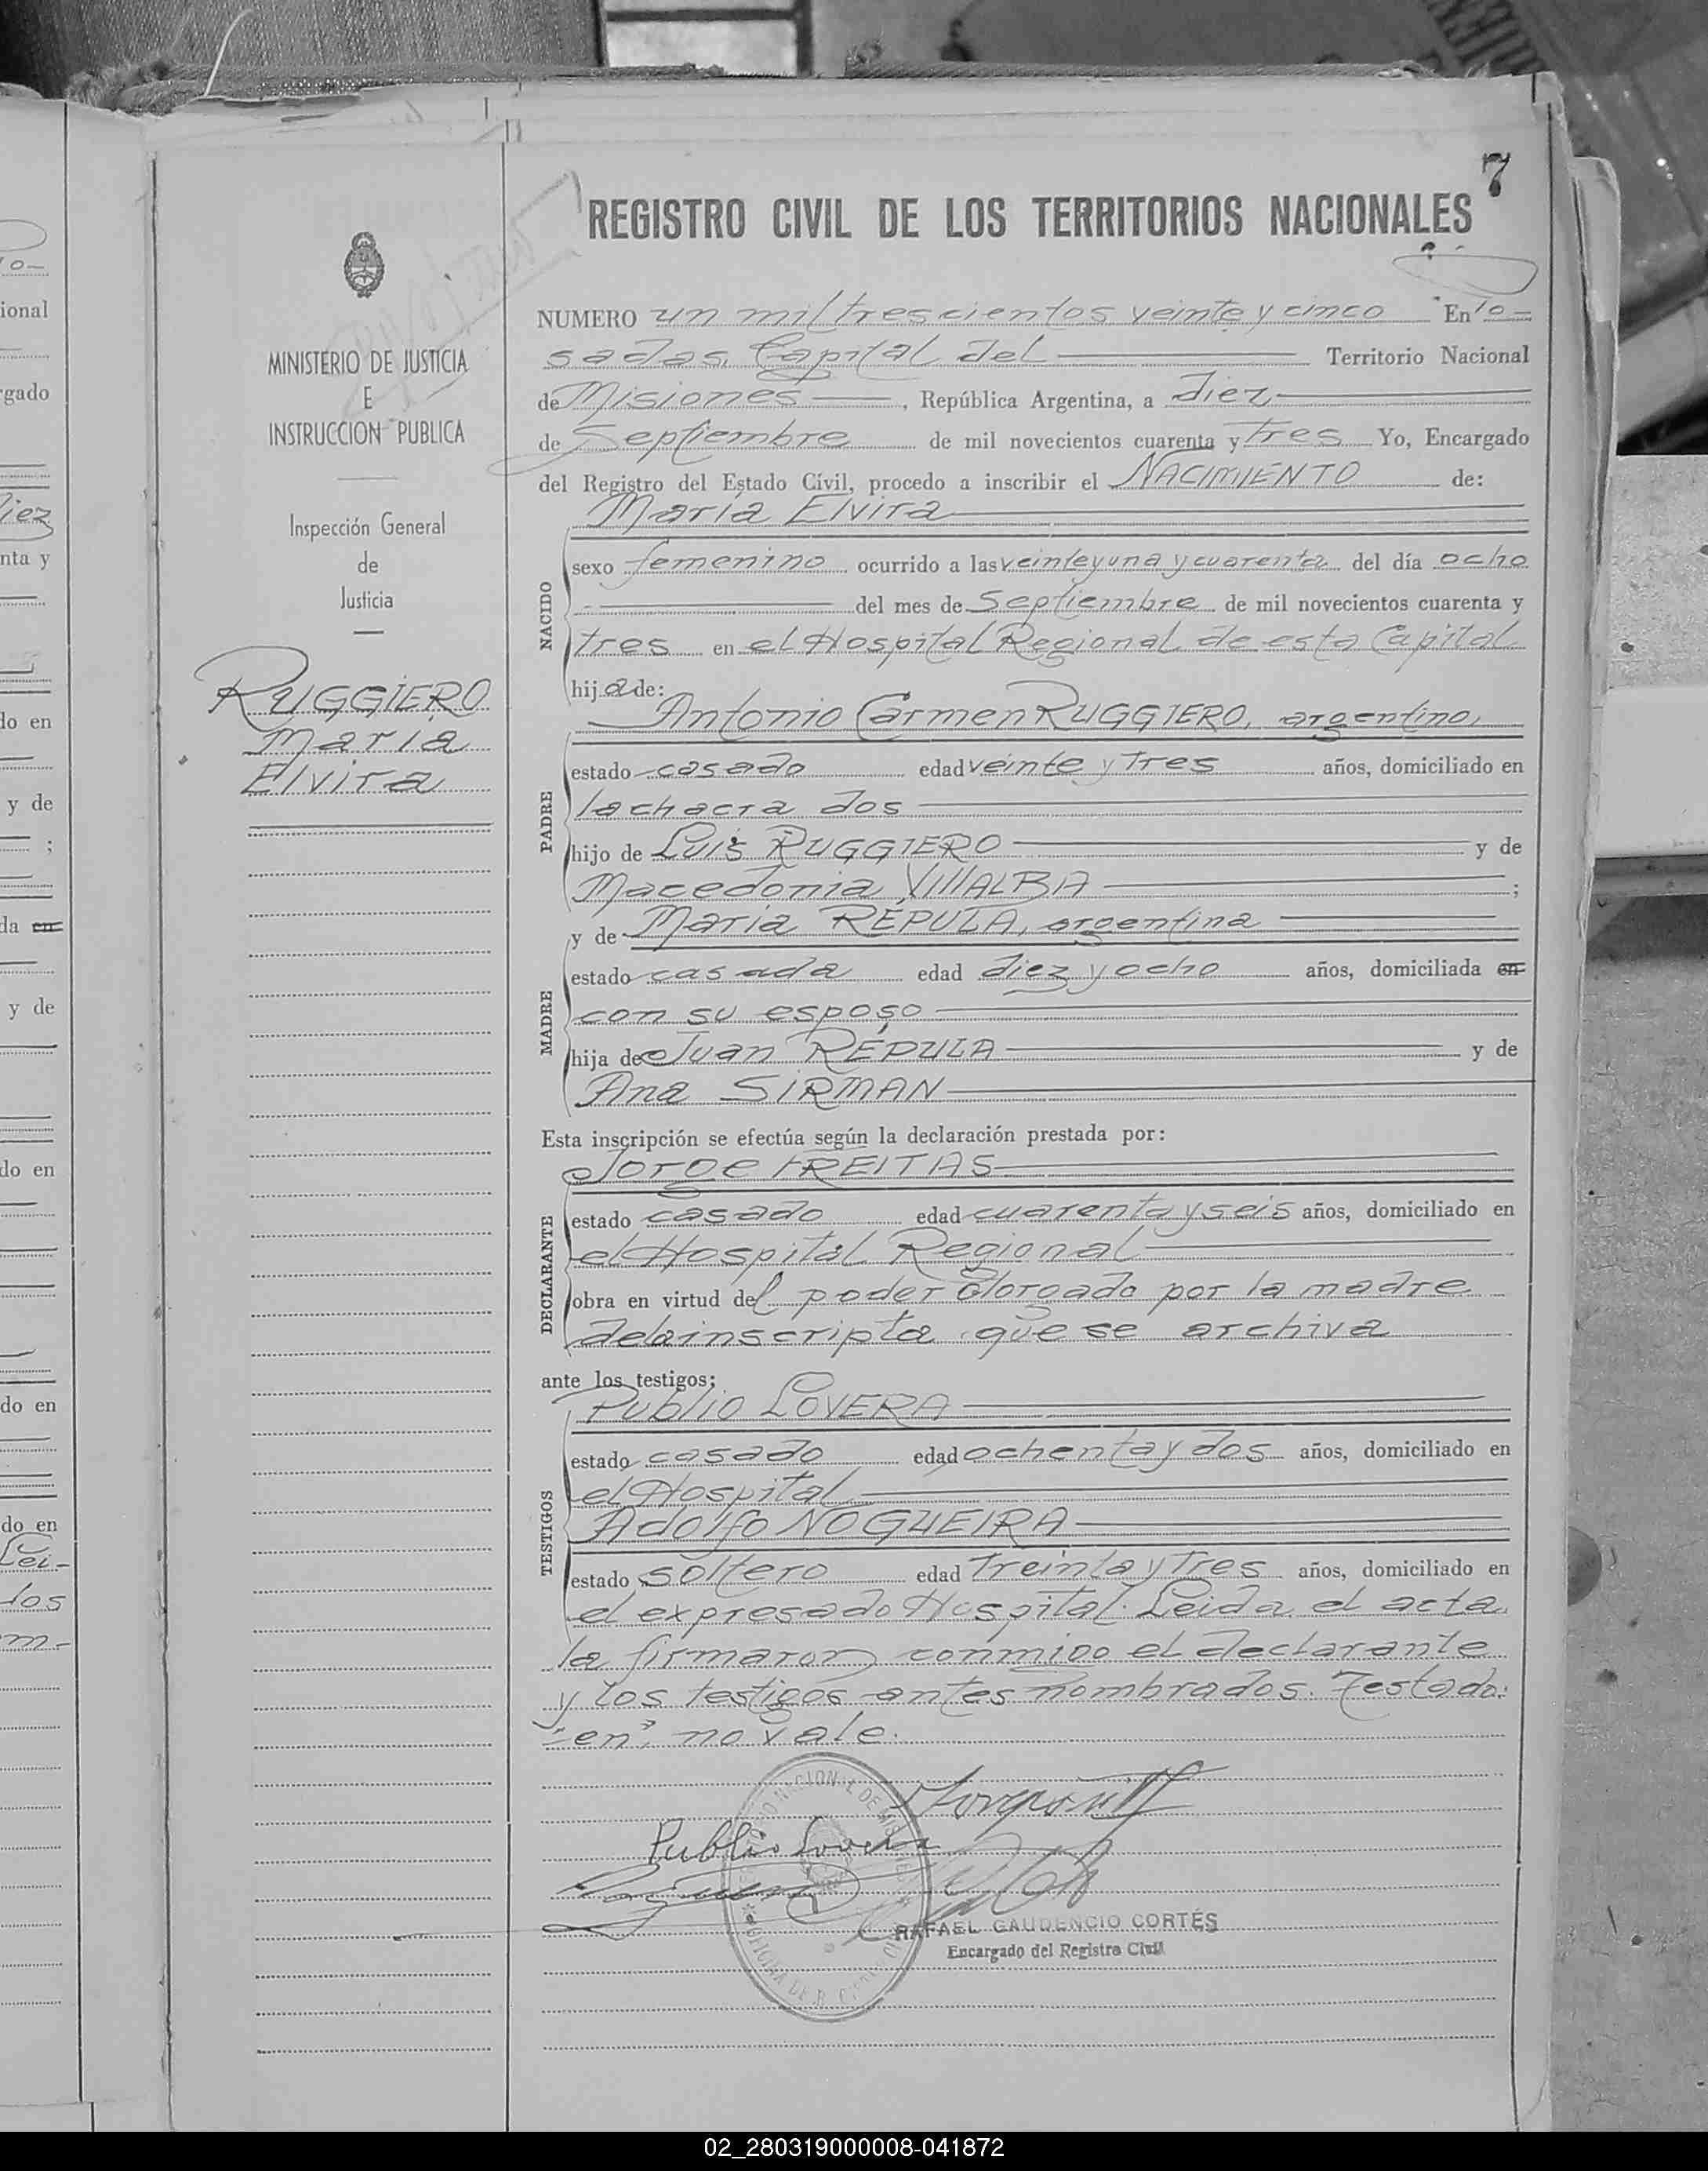 7
REGISTRO CIVIL DE LOS TERRITORIOS NACIONALES
MINISTERIO DE JUSTICIA
E
INSTRUCCION PUBLICA
Inspección General
de
Justicia
RUGGIERO
Maria
Elvira
NUMERO un mil trescientos veinte y cinco En Po-
sadas, Capital del Territorio Nacional
de Misiones, República Argentina, a diez
de Septiembre de mil novecientos cuarenta y tres Yo, Encargado
del Registro del Estado Civil, procedo a inscribir el NACIMIENTO de:
Maria Elvira
NACIDO
sexo femenino ocurrido a las veinte y una y cuarenta del día ocho
del mes de Septiembre de mil novecientos cuarenta y
tres en el Hospital Regional de esta Capital
hija de:
Antonio Carmen RUGGIERO, argentino,
PADRE
estado casado edad veinte y tres años, domiciliado en
la chacra dos
hijo de Luis RUGGIERO y de
Macedonia VIllALBA ;
y de Maria REPULA, argentina
MADRE
estado casada edad diez y ocho años, domiciliada en
con su esposo
hija de Juan REPULA y de
Ana SIRMAN
Esta inscripción se efectúa según la declaración prestada por:
Jorge FREITAS
DECLARANTE
estado casado edad cuarenta y seis años, domiciliado en
el Hospital Regional
obra en virtud del poder otorgado por la madre
de la inscripta que se archiva
ante los testigos:
Publio LOVERA
TESTIGOS
estado casado edad ochenta y dos años, domiciliado en
el Hospital
Adolfo NOGUEIRA
estado soltero edad treinta y tres años, domiciliado en
el expresado Hospital. Leida el acta
la firmaron conmigo el declarante
y los testigos antes nombrados. Testado:
"en", no vale.
Publio Lovera
RAFAEL GAUDENCIO CORTÉS
Encargado del Registro Civil
02_280319000008-041872